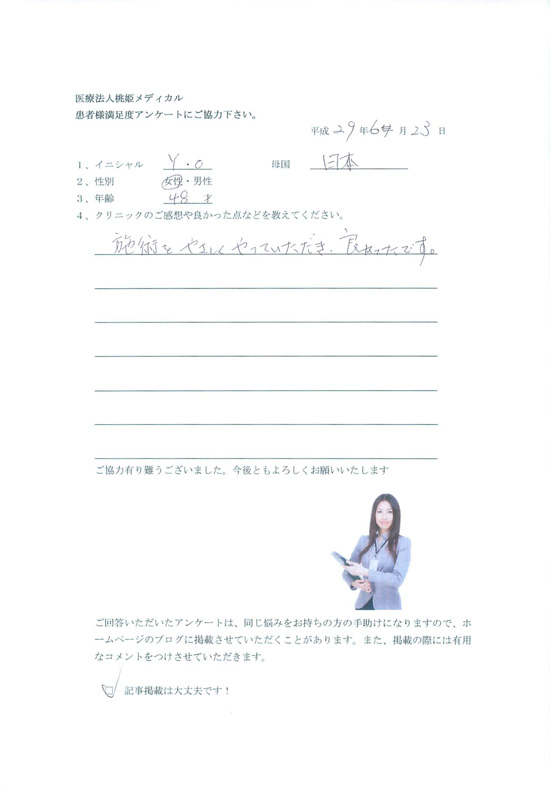 医療法人桃姫メディカル
患者様満足度アンケートにご協力下さい。
平成 29 年 6 月 23 日
1、イニシャル Y・O 母国 日本
2、性別 女性・男性
3、年齢 48 才
4、クリニックのご感想や良かった点などを教えてください。
施術をやさしくやっていただき、良かったです。
ご協力有り難うございました。今後ともよろしくお願いいたします
ご回答いただいたアンケートは、同じ悩みをお持ちの方の手助けになりますので、ホ
ームページのブログに掲載させていただくことがあります。また、掲載の際には有用
なコメントをつけさせていただきます。
記事掲載は大丈夫です！